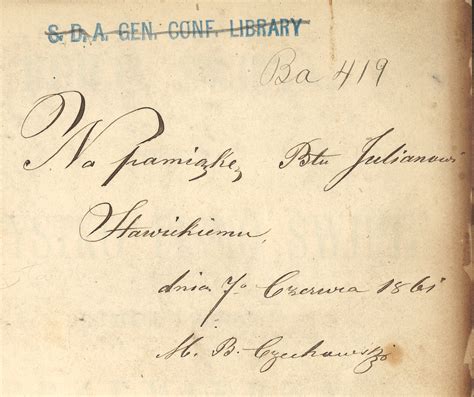 S. D. A. GEN. CONF. LIBRARY
Ba 419
Na pamiązkę Btu Julianowi
Sławickiemu,
dnia 7o Czerwca 1861
M. B. Czechowski